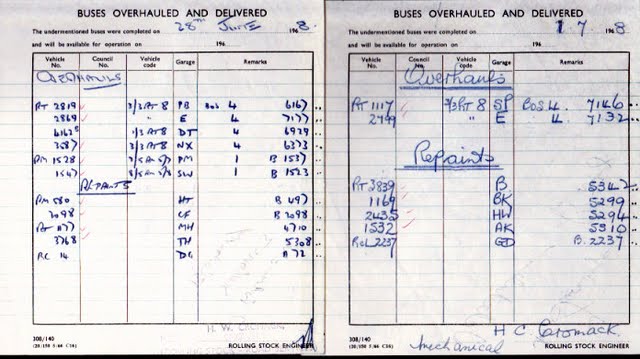 BUSES OVERHAULED AND DELIVERED
28TH JUNE 1968.
The undermentioned buses were completed on
and will be available for operation on 196
Vehicle No. Council No. Vehicle code Garage Remarks
OVERHAULS
RT 2819 3/3 RT 8 PB BOS 4 6167
2869 " E 4 7177
DT 4 6929
3687 3/3 RT 8 NX 4 6373
RM 1528 PM 1 B 1537
1547 SW 1 B 1523
REPAINTS
RM 580 HT B 497
2098 CF B 2098
RT 877 MH 4710
3768 TH 5308
RC 14 DG A 72
308/140
ROLLING STOCK ENGINEER
BUSES OVERHAULED AND DELIVERED
1 7 1968
The undermentioned buses were completed on
and will be available for operation on 196
Vehicle No. Council No. Vehicle code Garage Remarks
Overhauls
RT 1117 3/3 RT 8 SP BOS 4. 7146
2799 " E 4. 7132
Repaints
RT 3839 B 5342
1169 BK 5299
2435 HW 5294
1532 AK 5310
RCL 2237 GD B. 2237
H C. Cromack
308/140
mechanical ROLLING STOCK ENGINEER